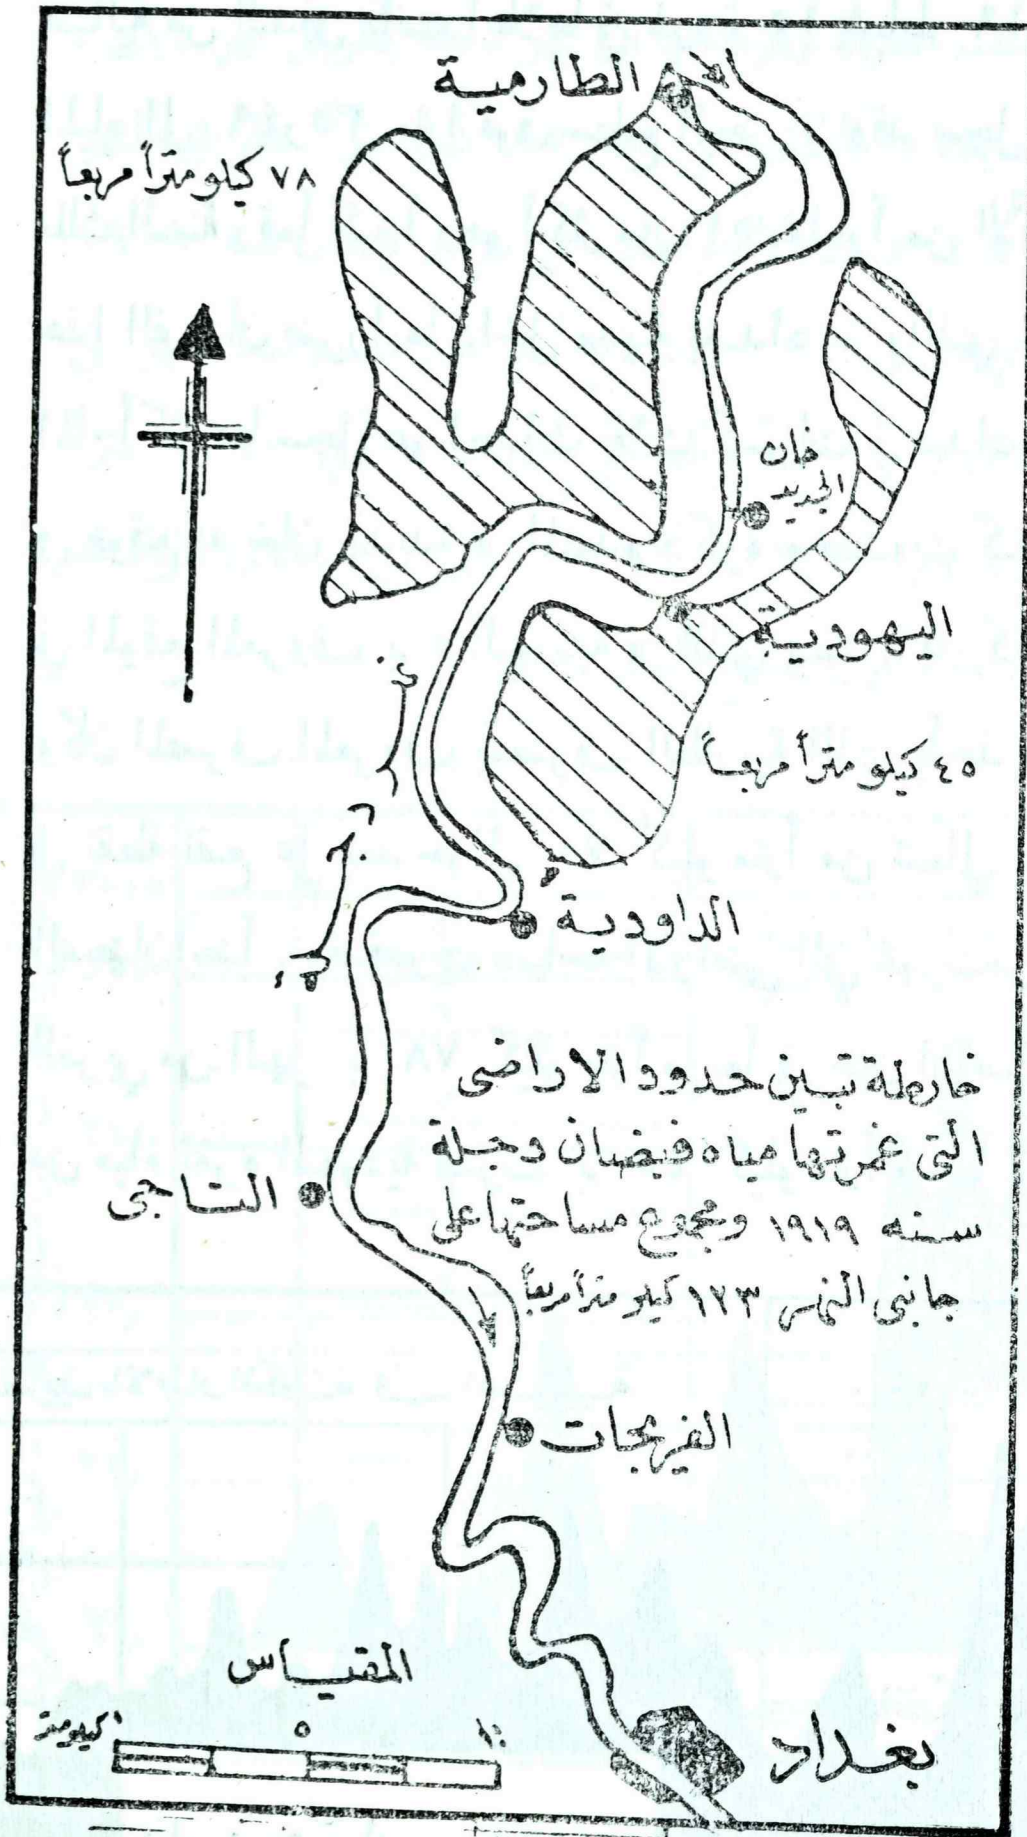 الطارمية
٧٨ كيلو متراً مربعاً
خان
الجديد
اليهودية
٤٥ كيلو متراً مربعاً
نهر
دجلة
الداودية
خارطة تبين حدود الاراضى
التى غمرتها مياه فيضان دجلة
سنه ١٩١٩ ومجموع مساحتها على
جانبى النهر ١٢٣ كيلو متراً مربعاً
التاجى
الفريجات
المقياس
كيلومتر
٥
١٠
بغداد